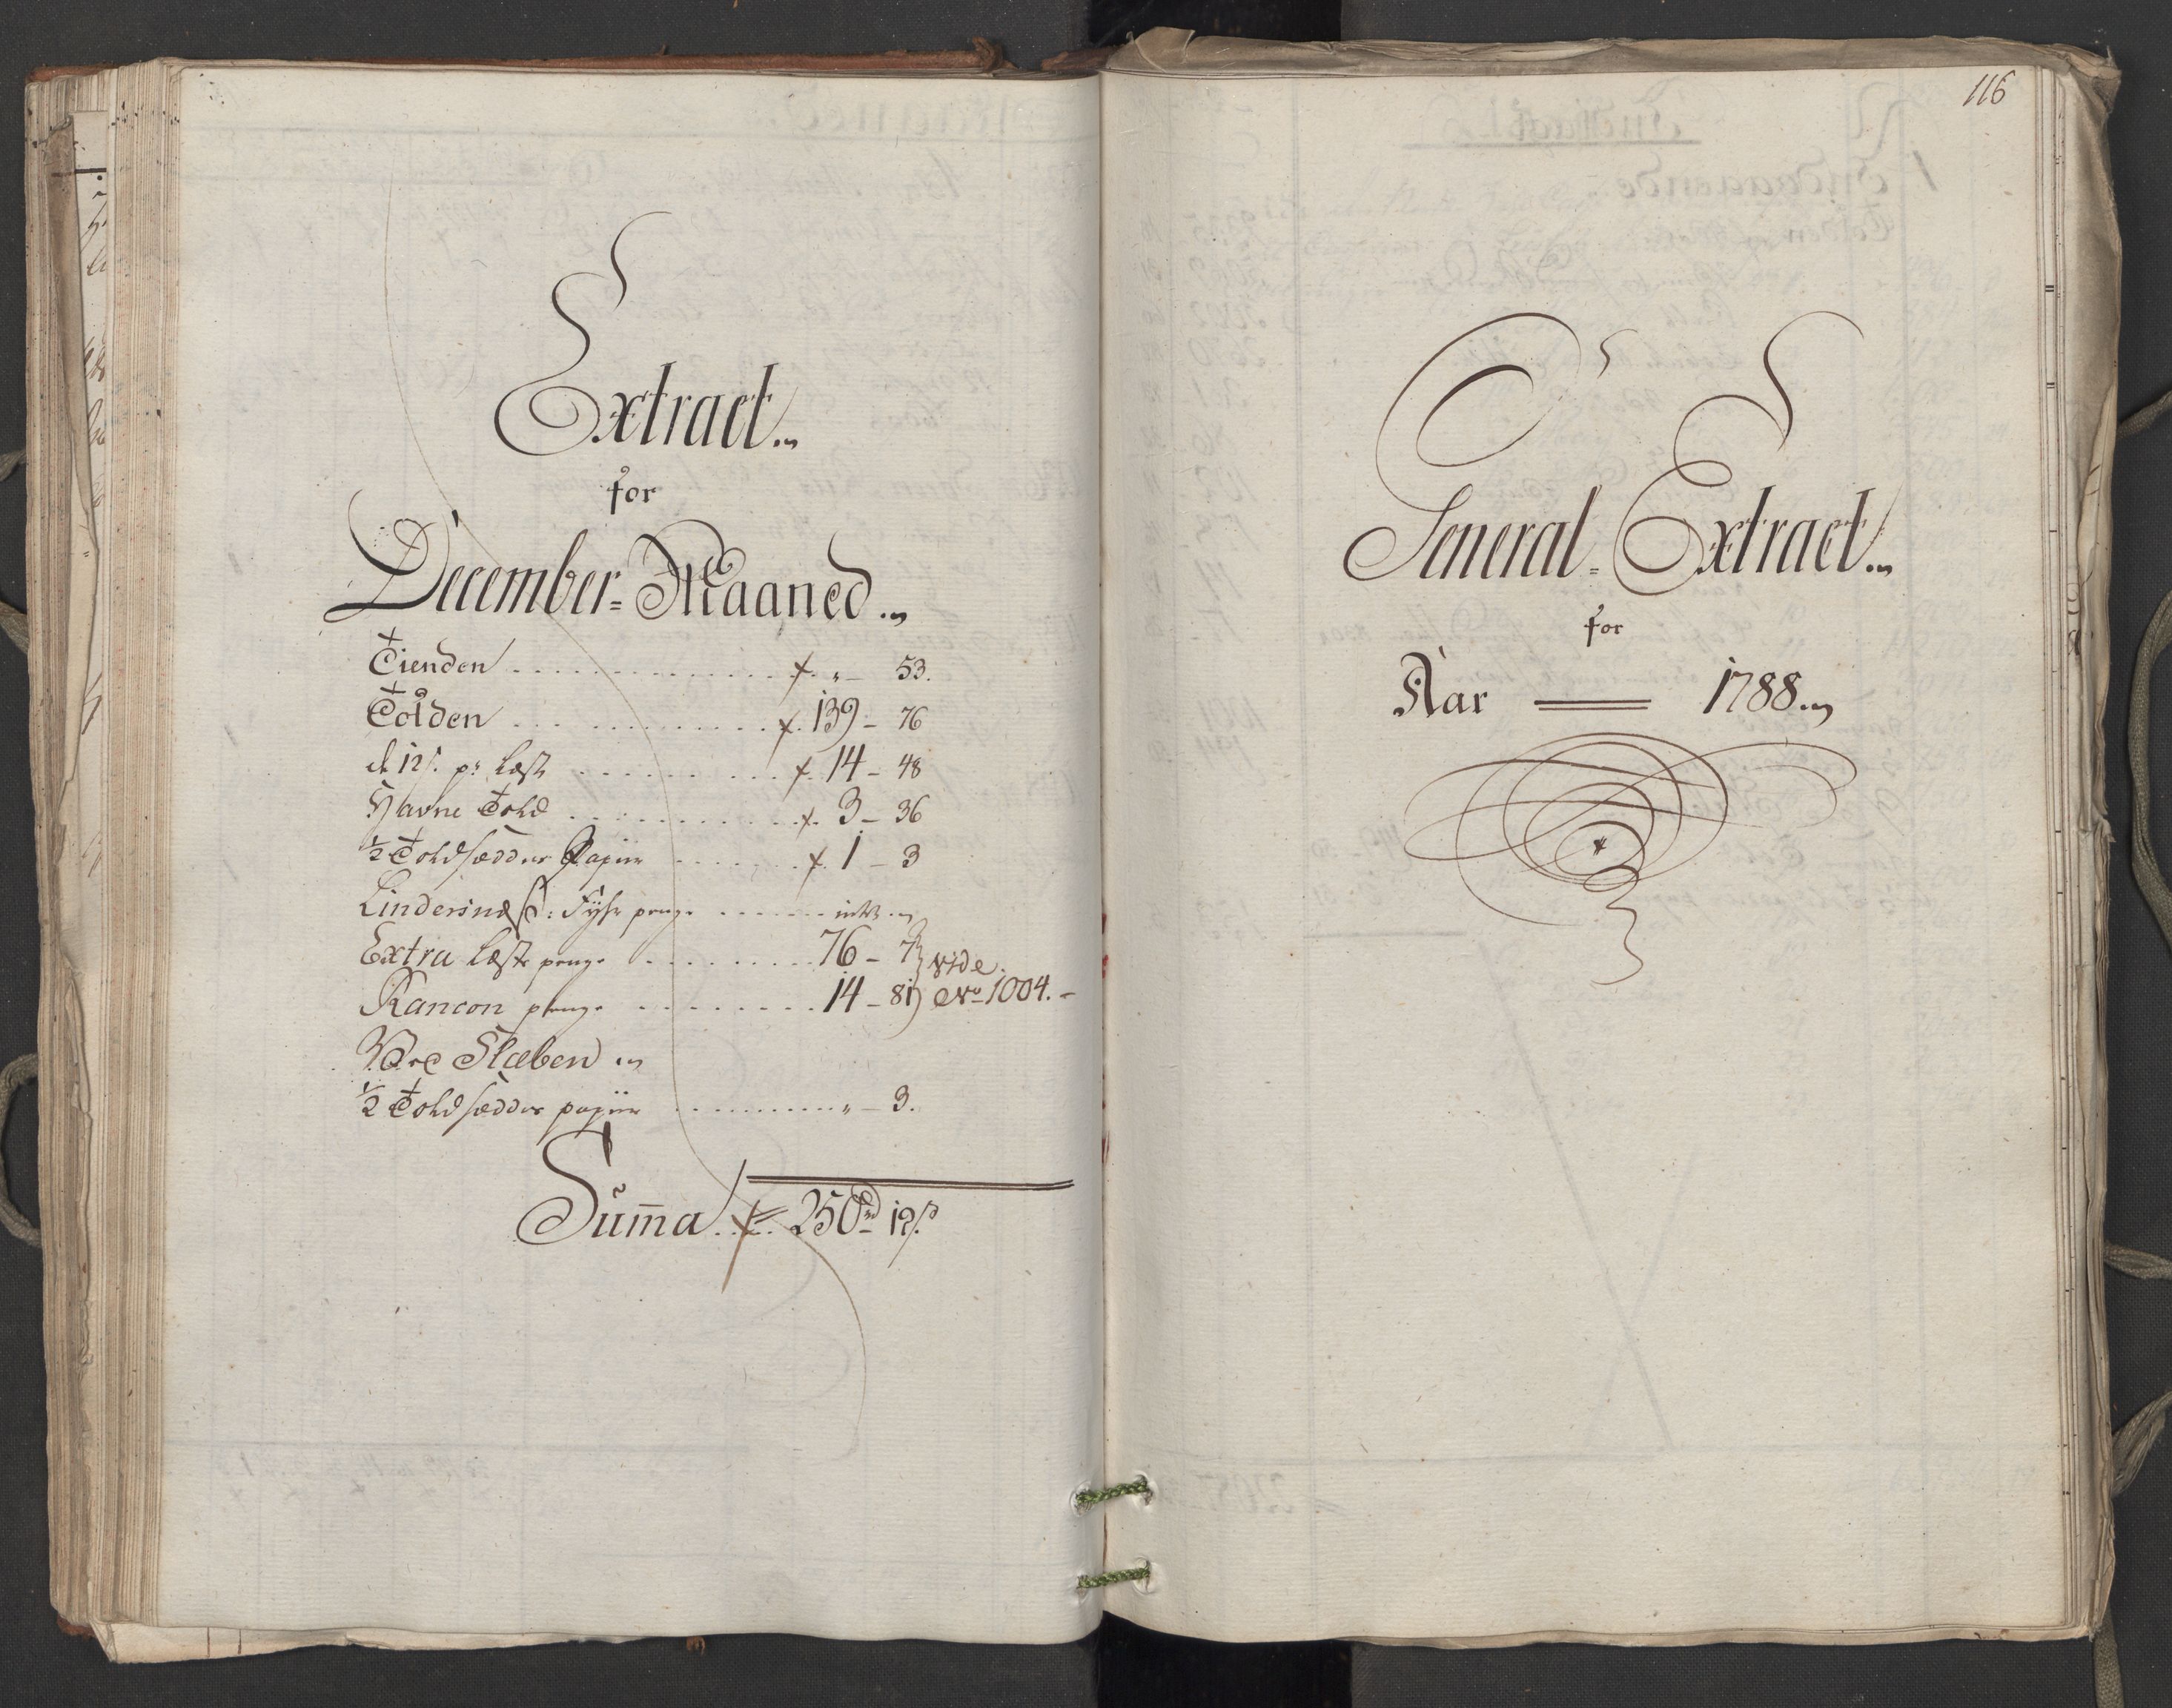 Extract
for
December=Maaned
Tienden . . . . „ – 53.
Tolden . . . . 139 – 76
de 12 s. pr Læst . . . . 14 – 48
Havne Told . . . . 3 – 36
½ Toldsædder Papiir . . . . 1 – 3
Lindersnæs: Fyhr penge . . . . intet
Extra Læste penge . . . . 76 – 7 } vide
Rancon penge . . . . 14 – 81 } No 1004. –
Slæben
½ Toldsædder papiir . . . . „ – 3.
Suma . . 250 rd 19 s.
116
General=Extract
for
Aar 1788